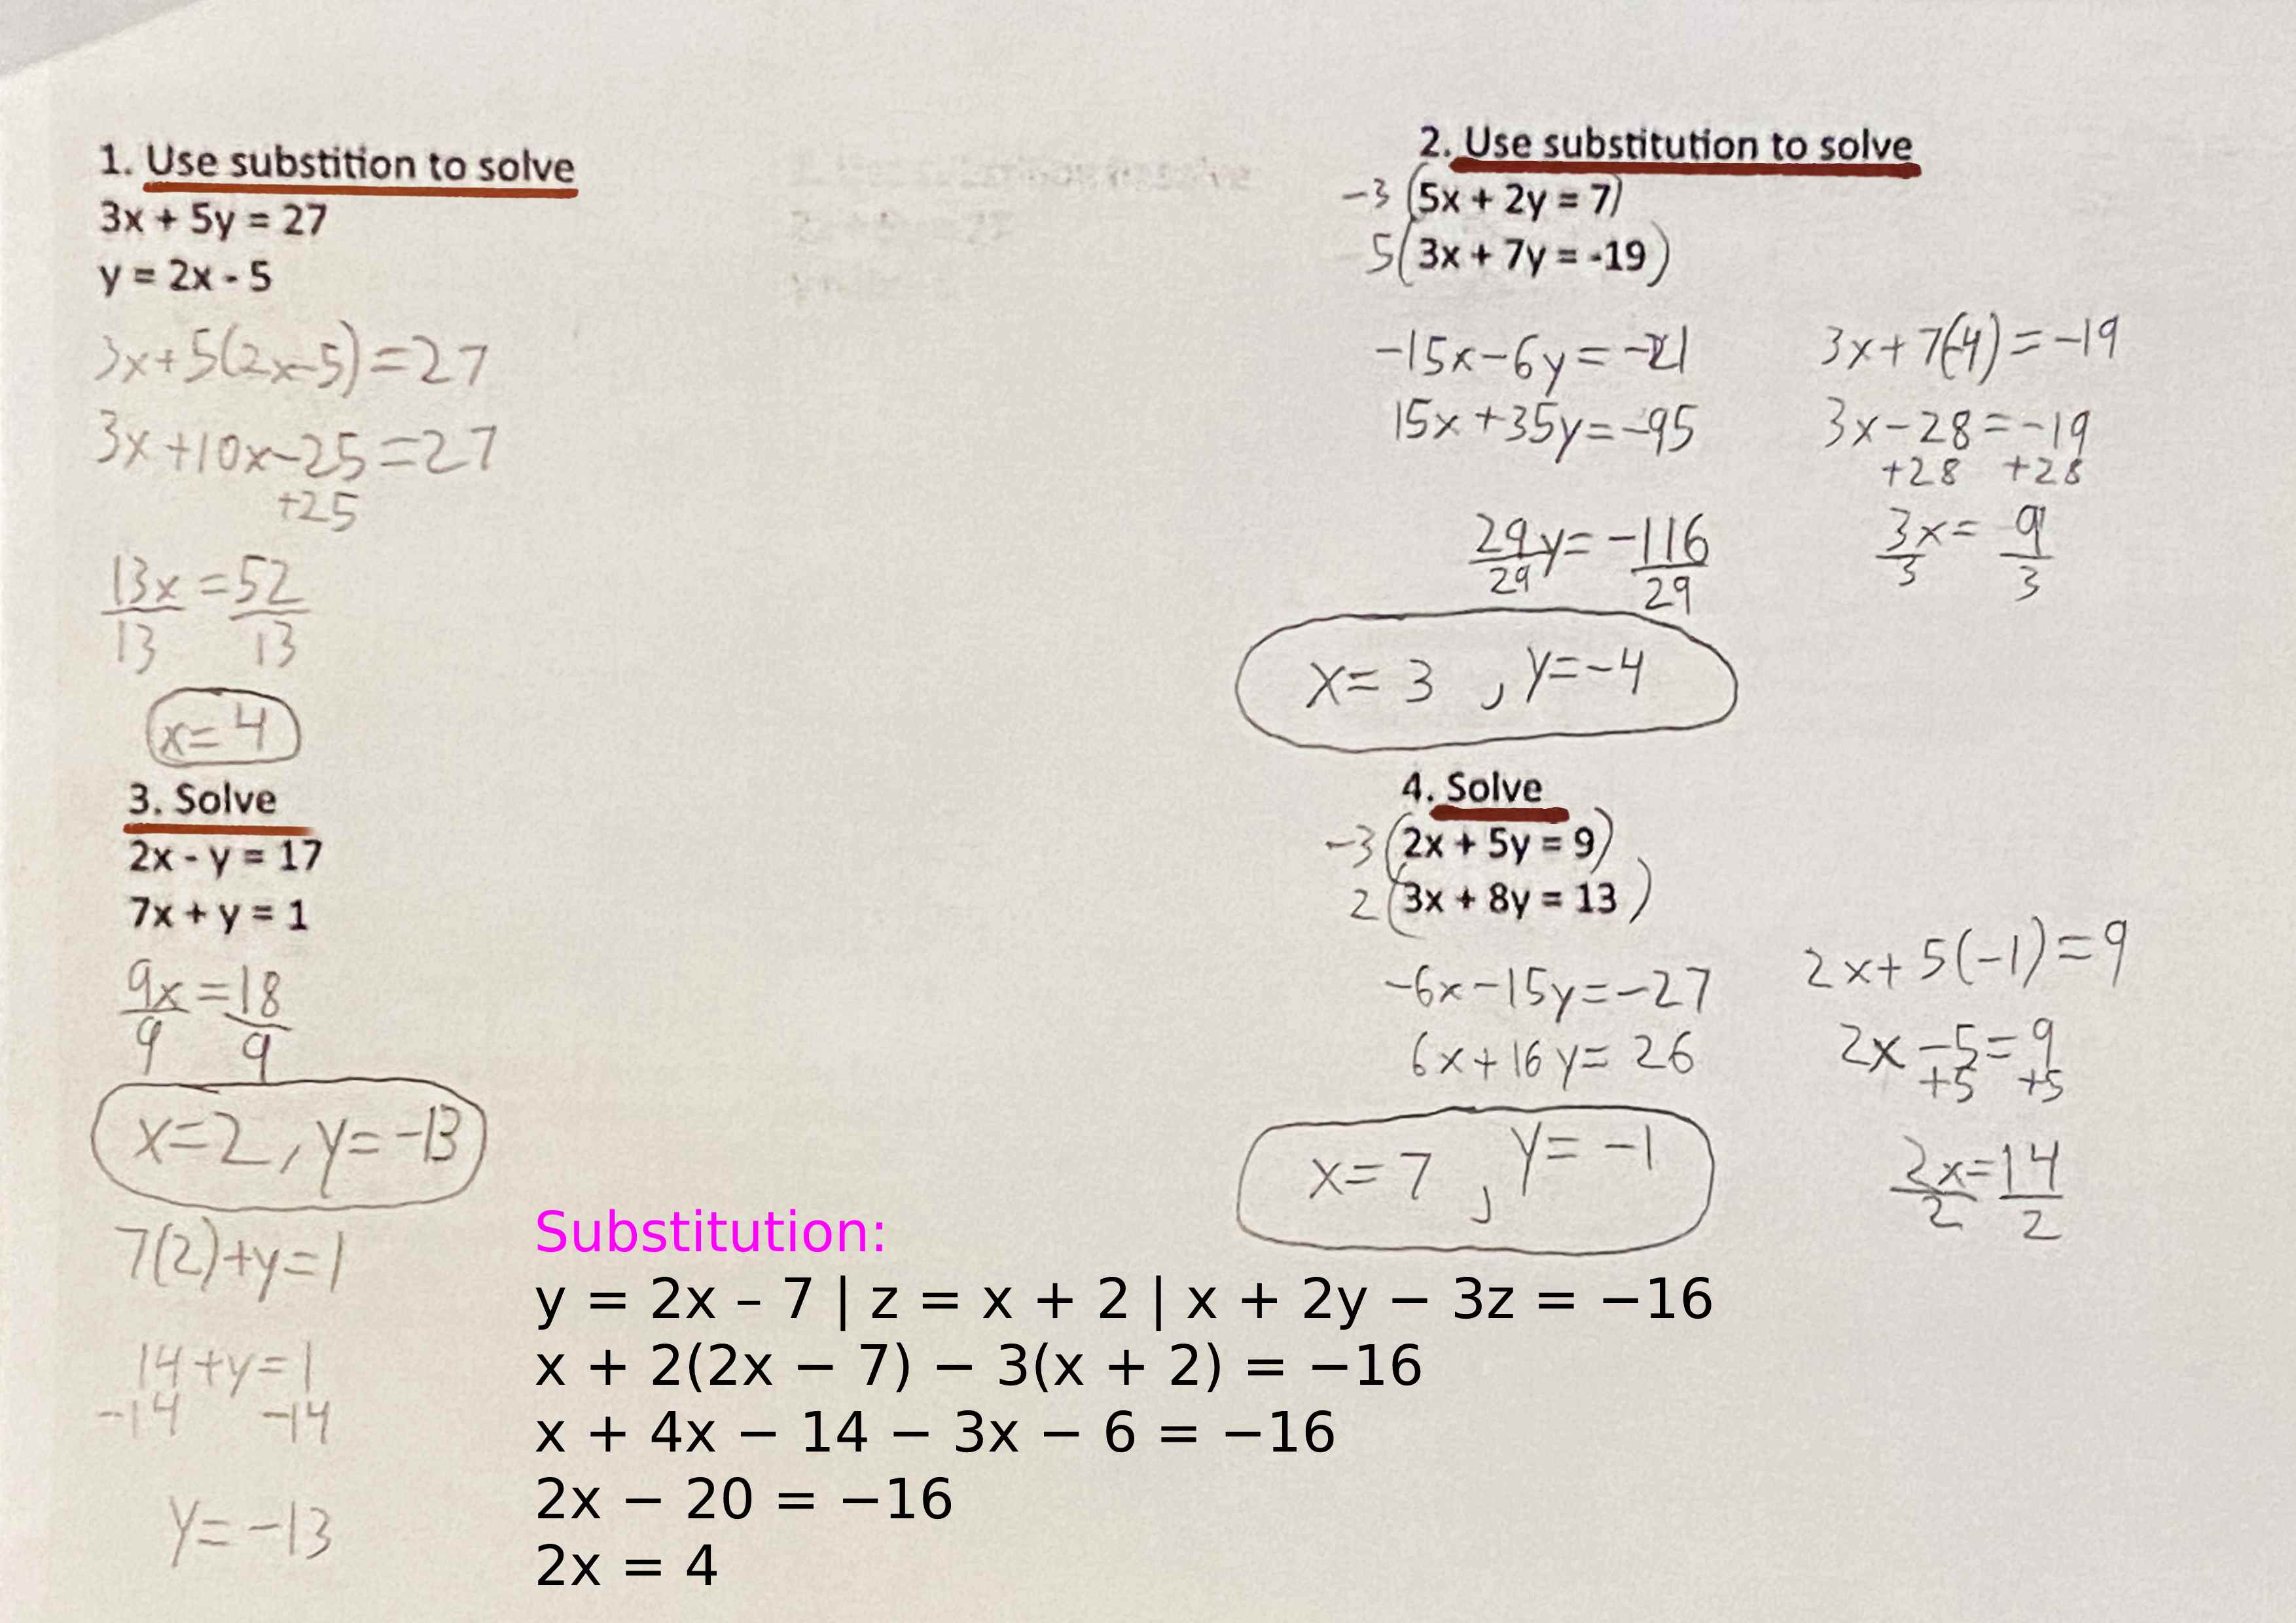 1. Use substition to solve
3x + 5y = 27
y = 2x - 5
3x+5(2x-5)=27
3x+10x-25=27
+25
13x=52
13 13
x=4
2. Use substitution to solve
-3 (5x + 2y = 7)
5(3x + 7y = -19)
-15x-6y=-21
15x+35y=-95
29y=-116
29 29
x=3 , y=-4
3x+7(-4)=-19
3x-28=-19
+28 +28
3x=9
3 3
3. Solve
2x - y = 17
7x + y = 1
9x=18
9 9
x=2, y=-13
7(2)+y=1
14+y=1
-14 -14
y=-13
4. Solve
-3(2x + 5y = 9)
2(3x + 8y = 13)
-6x-15y=-27
6x+16y=26
x=7 , y=-1
2x+5(-1)=9
2x-5=9
+5 +5
2x=14
2 2
Substitution:
y = 2x – 7 | z = x + 2 | x + 2y − 3z = −16
x + 2(2x − 7) − 3(x + 2) = −16
x + 4x − 14 − 3x − 6 = −16
2x − 20 = −16
2x = 4